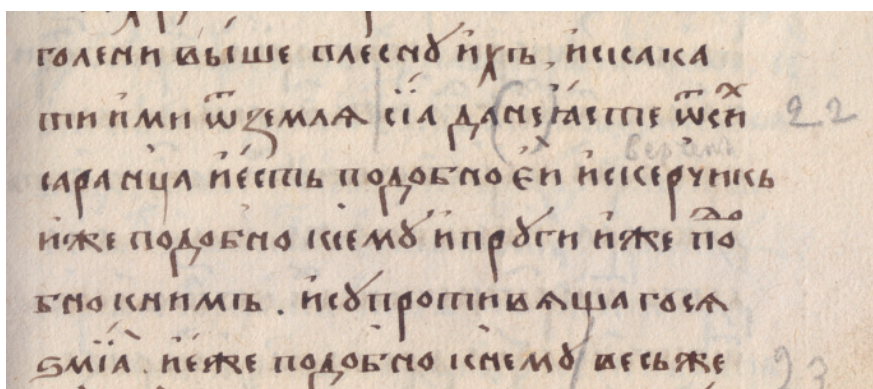 голени выше плеснꙋ и҆́хъ, и҆скака
ти и҆́ми ѿ землѧ сїѧ̀ да не ꙗ҆́сте ѿ си́х 22
саранца и҆́єсть подобно є҆́и и҆ скерчикъ
и҆́же подобно к семꙋ̀ и҆ прꙋги и҆́жеподо
бно к нимъ . и҆ сꙋпротивѧщагосѧ
ѕмїѧ̀ . и҆́єже подобно к немꙋ̀ весь же 23